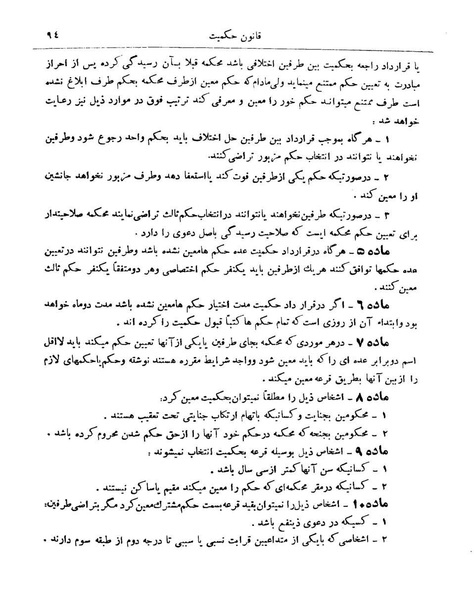 قانون حکمیت
۹۴
یا قرارداد راجعه بحکمیت بین طرفین اختلافی باشد محکمه قبلا بآن رسیدگی کرده پس از احراز
مبادرت به تعیین حکم ممتنع مینماید ولی مادام که حکم معین از طرف محکمه بحکم طرف ابلاغ نشده
است طرف ممتنع میتواند حکم خود را معین و معرفی کند ترتیب فوق در موارد ذیل نیز رعایت
خواهد شد :
۱ - هرگاه بموجب قرارداد بین طرفین حل اختلاف باید بحکم واحد رجوع شود وطرفین
نخواهند یا نتوانند در انتخاب حکم مزبور تراضی کنند.
۲ - درصورتیکه حکم یکی از طرفین فوت کند یا استعفا دهد وطرف مزبور نخواهد جانشین
او را معین کند .
۳ - درصورتیکه طرفین نخواهند یا نتوانند در انتخاب حکم ثالث تراضی نمایند محکمه صلاحیتدار
برای تعیین حکم محکمه ایست که صلاحیت رسیدگی باصل دعوی را دارد .
ماده ۵ - هرگاه در قرارداد حکمیت عده حکم ها معین نشده باشد وطرفین نتوانند در تعیین
عده حکمها توافق کنند هریك از طرفین باید یکنفر حکم اختصاصی وهر دو متفقاً یکنفر حکم ثالث
معین کنند .
ماده ۶ - اگر در قرارداد حکمیت مدت اختیار حکم ها معین نشده باشد مدت دو ماه خواهد
بود و ابتداء آن از روزی است که تمام حکم ها کتباً قبول حکمیت را کرده اند .
ماده ۷ - در هر موردی که محکمه بجای طرفین یا یکی از آنها تعیین حکم میکند باید لااقل
اسم دو برابر عده ای را که باید معین شود و واجد شرایط مقرره هستند نوشته وحکم یا حکمهای لازم
را از بین آنها بطریق قرعه معین میکند .
ماده ۸ - اشخاص ذیل را مطلقاً نمیتوان بحکمیت معین کرد:
۱ - محکومین بجنایت و کسانیکه باتهام ارتکاب جنایتی تحت تعقیب هستند .
۲ - محکومین بجنحه که محکمه در حکم خود آنها را از حق حکم شدن محروم کرده باشد .
ماده ۹ - اشخاص ذیل بوسیله قرعه بحکمیت انتخاب نمیشوند :
۱ - کسانیکه سن آنها کمتر از سی سال باشد .
۲ - کسانیکه در مقر محکمه ای که حکم را معین میکند مقیم یا ساکن نیستند .
ماده ۱۰ - اشخاص ذیل را نمیتوان بقید قرعه بسمت حکم مشترك معین کرد مگر بتراضی طرفین:
۱ - کسیکه در دعوی ذینفع باشد .
۲ - اشخاصی که با یکی از متداعیین قرابت نسبی یا سببی تا درجه دوم از طبقه سوم دارند .